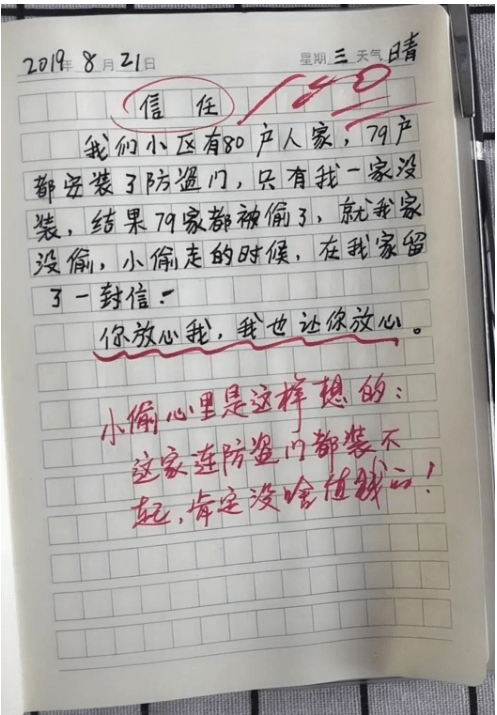 2019年 8月21日 星期三 天气晴
信 任 100
我们小区有80户人家，79户
都安装了防盗门，只有我一家没
装，结果79家都被偷了，就我家
没偷，小偷走的时候，在我家留
了一封信：
你放心我，我也让你放心。
小偷心里是这样想的：
这家连防盗门都装不
起，肯定没啥值钱的！